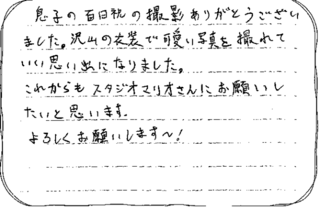 息子の百日祝の撮影ありがとうござい
ました。沢山の衣装で可愛い写真を撮れて
いい思い出になりました。
これからもスタジオマリオさんにお願いし
たいと思います。
よろしくお願いします〜!